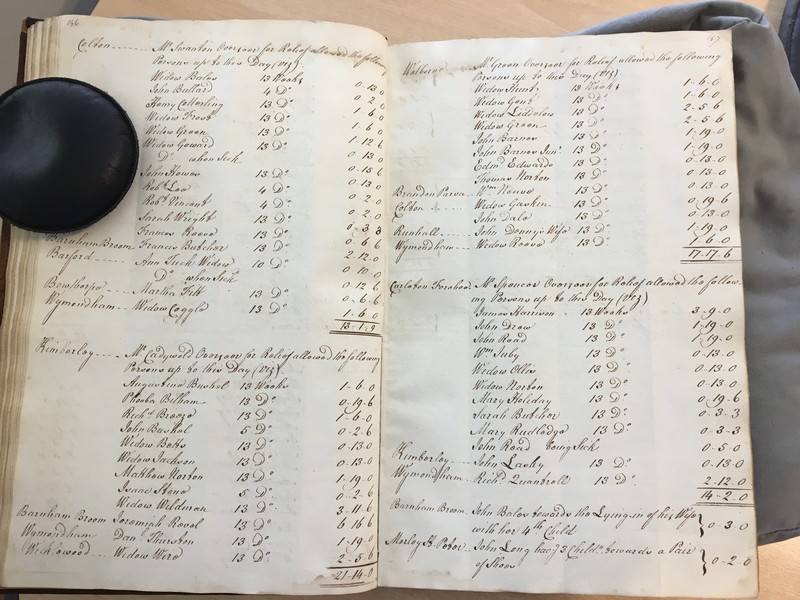 146
Colton Mr. Swanton Overseer for Relief allowed the following
Persons up to this Day (Viz)
Widow Bales 13 Weeks 0-13-0
John Bullard 4 Do 0-2-0
Henry Cotterling 13 Do 1-6-0
Widow Frost 13 Do 1-6-0
Widow Green 13 Do 1-12-6
Widow Goward 13 Do 0-13-0
Do when Sick 0-15-6
John Howes 13 Do 0-13-0
Robt. Lea 4 Do 0-2-0
Robt. Vincent 4 Do 0-2-0
Sarah Wright 13 Do 0-3-3
Frances Reeve 13 Do 0-6-6
Barnham Broom Frances Butcher 13 Do 2-12-0
Barford Ann Tuck Widow 10 Do 0-10-0
Do when Sick 0-12-6
Bowthorpe Martha Titt 13 Do 0-6-6
Wymondham Widow Coggle 13 Do 1-6-0
13-1-9
Kimberley Mr. Cadywold Overseer for Relief allowed the following
Persons up to this Day (Viz)
Augustine Bushel 13 Weeks 1-6-0
Pheebe Bilham 13 Do 0-19-6
Richd. Breeze 13 Do 1-6-0
John Bushel 5 Do 0-2-6
Widow Boks 13 Do 0-13-0
Widow Jackson 13 Do 0-13-0
Matthew Norton 13 Do 1-19-0
Isaac Stone 5 Do 0-2-6
Widow Wildman 13 Do 3-11-6
Barnham Broom Jeremiah Revel 13 Do 6 16 6
Wymondham Danl. Thurston 13 Do 1-19-0
Wicklewood Widow Ward 13 Do 2-5-6
21-14-0
147
Welborne Mr. Green Overseer for Relief allowed the following
Persons up to this Day (Viz)
Widow Hunt 13 Weeks 1-6-0
Widow Gent 13 Do 1-6-0
Widow Liddelow 13 Do 2-5-6
Widow Green 13 Do 2-5-6
John Barnes 13 Do 1-19-0
John Barnes Junr. 13 Do 1-19-0
Edmd. Edwards 13 Do 0-13-0
Thomas Norton 13 Do 0-13-0
Brandon Parva Wm. Neave 13 Do 0-13-0
Colton Widow Gaskin 13 Do 0-19-6
John Dale 13 Do 0-13-0
Runhall John Denny's Wife 13 Do 1-19-0
Wymondham Widow Reeve 13 Do 1-6-0
17-17-6
Carleton Forehoe Mr. Spencer Overseer for Relief allowed the follow-
ing Persons up to this Day (Viz)
James Harrison 13 Weeks 3-9-0
John Drew 13 Do 1-19-0
John Read 13 Do 1-19-0
Wm. Juby 13 Do 0-13-0
Widow Ollis 13 Do 0-13-0
Widow Norton 13 Do 0-13-0
Mary Holiday 13 Do 0-19-6
Sarah Butcher 13 Do 0-3-3
Mary Rudledge 13 Do 0-3-3
John Read being Sick 0-5-0
Kimberley John Lasky 13 Do 0-13-0
Wymondham Richd. Quantrell 13 Do 2-12-0
14-2-0
Barnham Broom John Bales towards the Lying in of his Wife
with her 4th Child 0-3-0
Morley St. Peter John Long havg. 3 Childn. towards a Pair
of Shoes 0-2-0